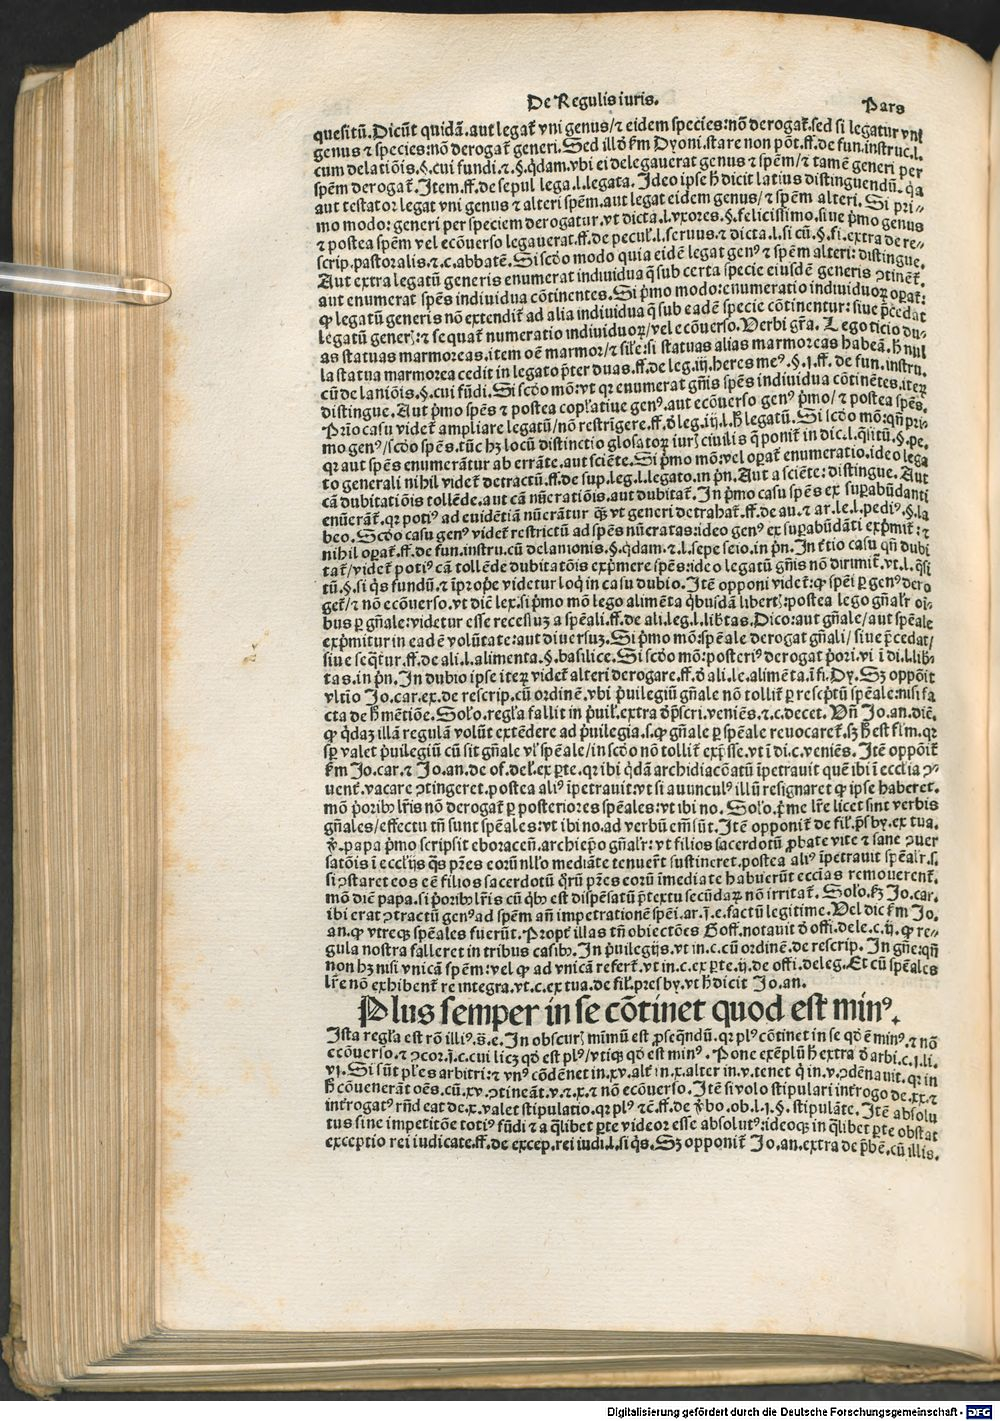 De Regulis iuris.
Pars
quesitū. Dicūt quidā. aut legat̄ vni genus/ ⁊ eidem species: nō derogat̄. sed si legatur vni
genus ⁊ species: nō derogat̄ generi. Sed illđ fm̄ Dyoni. stare non pōt. ff. de fun. instruc. l.
cum delatiōis. §. cui fundi. ⁊. §. q̄dam. vbi ei delegauerat genus ⁊ spēm/ ⁊ tamē generi per
spēm derogat̄. Item. ff. de sepul lega. l. legata. Ideo ipse ħ dicit latius distinguendū. q̄a
aut testator legat vni genus ⁊ alteri spēm. aut legat eidem genus/ ⁊ spēm alteri. Si pri-
mo modo: generi per speciem derogatur. vt dicta. l. vxores. §. felicissimo. siue p̄mo genus
⁊ postea spēm vel ecōuerso legauerat. ff. de pecul̄. l. seruus. ⁊ dicta. l. si cū. §. fi. extra de re-
scrip. pastoralis. ⁊. c. abbatē. Si scđo modo quia eidē legat genꝰ ⁊ spēm alteri: distingue.
Aut extra legatū generis enumerat indiuidua q̄ sub certa specie eiusdē generis ↄtinēt̄.
aut enumerat spēs indiuidua cōtinentes. Si p̄mo modo: enumeratio indiuiduoꝝ oꝑat̄:
ꝙ legatū generis nō extendit̄ ad alia indiuidua q̄ sub eadē specie cōtinentur: siue p̄cedat
legatū generꝭ: ⁊ sequat̄ numeratio indiuiduoꝝ/ vel ecōuerso. Verbi gr̄a. Lego ticio du-
as statuas marmoreas. item oē marmor/ ⁊ sil̄e: si statuas alias marmoreas habeā. ħ nul
la statua marmorea cedit in legato p̄ter duas. ff. de leg. iij. heres meꝰ. §. j. ff. de fun. instru.
cū de laniōis. §. cui fūdi. Si scđo mō: vt qꝛ enumerat gn̄is spēs indiuidua cōtinētes. iteꝝ
distingue. Aut p̄mo spēs ⁊ postea copl̄atiue genꝰ. aut ecōuerso genꝰ p̄mo/ ⁊ postea spēs.
Prīo casu videt̄ ampliare legatū/ nō restrigere. ff. đ leg. iij. l. ħ legatū. Si scđo mō: qn̄ pri-
mo genꝰ/ scđo spēs. tūc hꝫ locū distinctio glosatoꝝ iurꝭ ciuilis q̄ ponit̄ in dic. l. q̄sitū. §. pe.
qꝛ aut spēs enumerātur ab errāte. aut sciēte. Si p̄mo mō: vel oꝑat̄ enumeratio. ideo lega
to generali nihil videt̄ detractū. ff. de sup. leg. l. legato. in pn̄. Aut a sciēte: distingue. Aut
cā dubitatiōis tollēde. aut cā nūeratiōis. aut dubitat̄. In p̄mo casu spēs ex suꝑabūdanti
enūerāt̄. qꝛ potiꝰ ad euidētiā nūerātur q̄ꝫ vt generi detrahat̄. ff. de au. ⁊ ar. le. l. pediꝰ. §. la
beo. Scđo casu genꝰ videt̄ restrictū ad spēs nūeratas: ideo genꝰ ex suꝑabūdāti exp̄mit̄: ⁊
nihil oꝑat̄. ff. de fun. instru. cū delanionis. §. q̄dam. ⁊. l. sepe seio. in pn̄. In t̄tio casu qn̄ dubi
tat̄/ videt̄ potiꝰ cā tollēde dubitatōis exp̄mere spēs: ideo legatū gn̄is nō dirimit̄. vt. l. q̄si
tū. §. si q̄s fundū. ⁊ īproꝑe videtur loq̄ in casu dubio. Itē opponi videt̄: ꝙ spēi ꝑ genꝰ dero
get̄/ ⁊ nō ecōuerso. vt diē lex. si p̄mo mō lego alimēta q̄busdā libertꝭ: postea lego gn̄al̄r oī-
bus ꝑ gn̄ale: videtur esse recessuꝫ a spēali. ff. de ali. leg. l. lib̄tas. Dico: aut gn̄ale/ aut spēale
exp̄mitur in eadē volūtate: aut diuersuꝫ. Si p̄mo mō: spēale derogat gn̄ali/ siue p̄cedat/
siue seq̄tur. ff. de ali. l. alimenta. §. basilice. Si scđo mō: posteriꝰ derogat p̄ori. vi ī di. l. lib̄-
tas. in pn̄. In dubio ipse iteꝝ videt̄ alteri derogare. ff. đ ali. le. alimēta. ī fi. Dy. Sꝫ oppōit
vltīo Jo. car. ex. de rescrip. cū ordinē. vbi p̄uilegiū gn̄ale nō tollit̄ ꝑ rescp̄tū spēale: nisi fa
cta de ħ mētiōe. Sol̄o. regl̄a fallit in p̄uil̄. extra đ p̄scri. veniēs. ⁊. c. decet. Vn̄ Jo. an. diē.
ꝙ q̄daꝫ illā regulā volūt extēdere ad p̄uilegia. s. ꝙ gn̄ale ꝑ spēale reuocaret̄. sꝫ ħ est fl̄m. qꝛ
sꝑ valet p̄uilegiū cū sit gn̄ale vl̄ spēale/ in scđo nō tollit̄ exp̄sse. vt ī di. c. veniēs. Itē oppōit̄
fm̄ Jo. car. ⁊ Jo. an. de of. del̄. ex ꝑte. qꝛ ibi q̄dā archidiacōatū īpetrauit quē ibi ī ecclia ↄ-
uent̄. vacare ↄtingeret. postea aliꝰ īpetrauit. vt si auunculꝰ illū resignaret ꝙ ipse haberet.
mō p̄orib̄ lr̄is nō derogat̄ ꝑ posteriores spēales: vt ibi no. Sol̄o. p̄me lr̄e licet sint verbis
gn̄ales/ effectu tn̄ sunt spēales: vt ibi no. ad verbū em̄ sūt. Itē opponit̄ de fil̄. p̄sby. ex tua.
papa p̄mo scripsit eboraceñ. archiep̄o gn̄al̄r: vt filios sacerdotū ꝓbate vite ⁊ sane ↄuer
satōis ī ecclijs q̄s pr̄es eorū nll̄o mediāte tenuer̄t sustineret. postea aliꝰ īpetrauit spēal̄r. s.
si ↄstaret eos eē filios sacerdotū q̄rū pr̄es eorū īmediate habuerūt eccias remouerent̄.
mō diē papa. si p̄orib̄ lr̄is cū q̄b̄ est dispēsatū p̄textu secūdaꝝ nō irritat̄. Sol̄o. fꝫ Jo. car.
ibi erat ↄtractū genꝰ ad spēm añ impetrationē spēi. ar. j. e. factū legitime. Vel dic fm̄ Jo.
an. ꝙ vtreqꝫ spēales fuerūt. Propt̄ illas tn̄ obiectōes Goff. notauit đ offi. dele. c. ij. ꝙ re-
gula nostra falleret in tribus casib̄. In p̄uilegijs. vt in. c. cū ordinē. de rescrip. In gn̄e: qn̄
non hꝫ nisi vnicā spēm: vel ꝙ ad vnicā refert̄. vt in. c. ex ꝑte. ij. de offi. deleg. Et cū spēales
lr̄e nō exhibent̄ re integra. vt. c. ex tua. de fil̄. presby. vt ħ dicit Jo. an.
Plus semper in se cōtinet quod est minꝰ.
Ista regl̄a est rō illiꝰ. s̄. e. In obscurꝭ minimū est ꝓseq̄ndū. qꝛ plꝰ cōtinet in se qđ ē minꝰ. ⁊ nō
ecōuerso. ⁊ ↄcor. j̄. c. cui licꝫ qđ est plꝰ/ vtiqꝫ qđ est minꝰ. Pone exēplū ħ extra đ arbi. c. j. li.
vj. Si sūt pl̄es arbitri: ⁊ vnꝰ cōdēnet in. xv. alt̄ in. x. alter in. v. tenet q̄ in. v. ↄdēnauit. qꝛ in
ħ cōuenerāt oēs. cū. xv. ↄtineāt. v. ⁊. x. ⁊ nō ecōuerso. Itē si volo stipulari int̄rogo de. xx. ⁊
int̄rogatꝰ rn̄deat de. x. valet stipulatio. qꝛ plꝰ ⁊c̄. ff. de v̄bo. ob. l. j. §. stipulāte. Itē absolu
tus sine impetitōe totiꝰ fūdi ⁊ a q̄libet ꝑte videor esse absolutꝰ: ideoqꝫ in q̄libet ꝑte obstat
exceptio rei iudicate. ff. de excep. rei iudi. l. si q̄s. Sꝫ opponit̄ Jo. an. extra de p̄bē. cū illis.
Digitalisierung gefördert durch die Deutsche Forschungsgemeinschaft - DFG